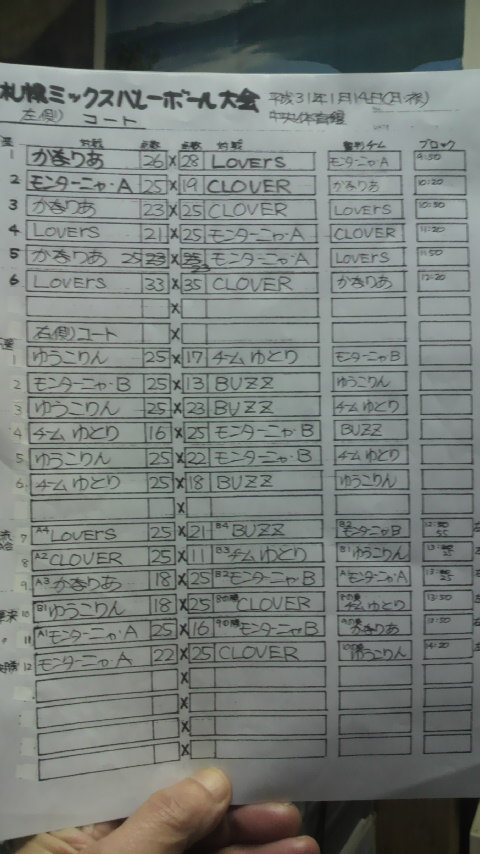 札幌ミックスバレーボール大会 平成31年1月14日(月・祝)
左側) コート 中央体育館
対戦 点数 点数 対戦 審判チーム ブロック
1 かまりあ 26 × 28 LOVErS モンターニャ・A 9:50
2 モンターニャ・A 25 × 19 CLOVER かまりあ 10:20
3 かまりあ 23 × 25 CLOVER LOVErS 10:50
4 LOVErS 21 × 25 モンターニャ・A CLOVER 11:20
5 かまりあ 25 × 23 モンターニャ・A LOVErS 11:50
6 LOVErS 33 × 35 CLOVER かまりあ 12:20
×
右側)コート ×
1 ゆうこりん 25 × 17 チームゆとり モンターニャB
2 モンターニャ・B 25 × 13 BUZZ ゆうこりん
3 ゆうこりん 25 × 23 BUZZ チームゆとり
4 チームゆとり 16 × 25 モンターニャ・B BUZZ
5 ゆうこりん 25 × 22 モンターニャ・B チームゆとり
6 チームゆとり 25 × 18 BUZZ ゆうこりん
×
7 A4 LOVErS 25 × 21 B4 BUZZ B2 モンターニャB
8 A2 CLOVER 25 × 11 B3 チームゆとり B1 ゆうこりん
9 A3 かまりあ 18 × 25 B2 モンターニャ・B A1 モンターニャ・A
10 B1 ゆうこりん 18 × 25 CLOVER チームゆとり 13:50
11 A1 モンターニャ・A 25 × 16 モンターニャ・B かまりあ
12 モンターニャ・A 22 × 25 CLOVER ゆうこりん 14:20
×
×
×
×